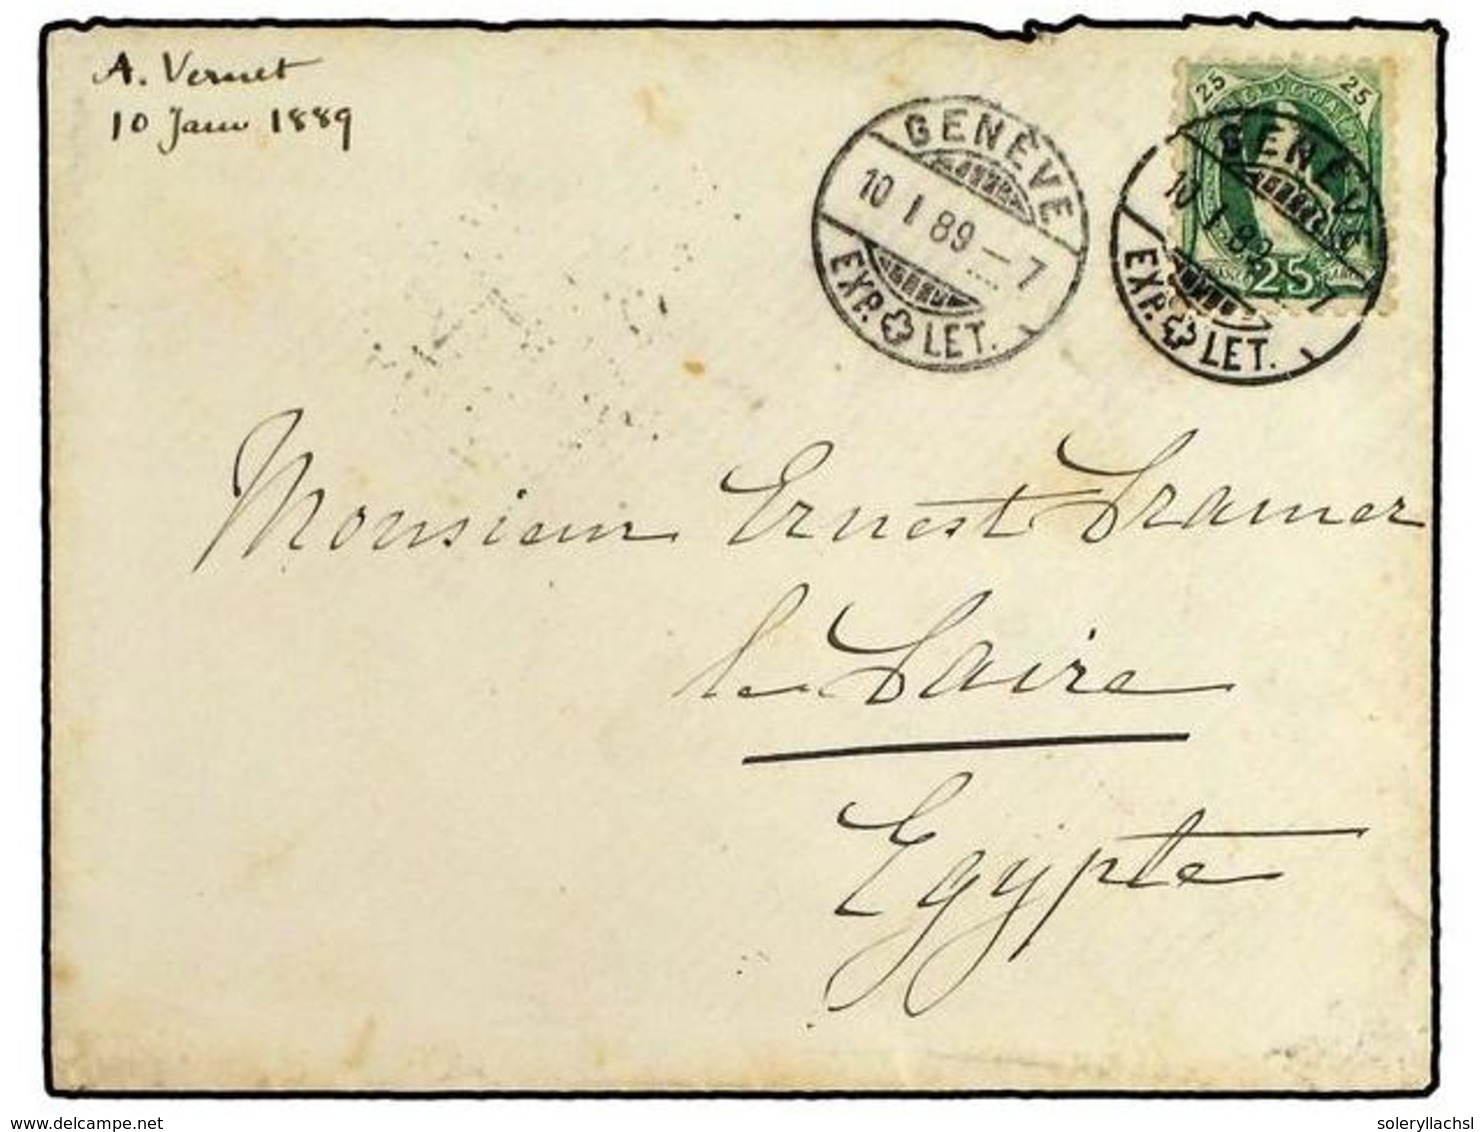 A. Vernet
10 Janv 1889
GENÈVE
10 I 89 – 7
EXP. LET.
25 25
GENÈVE
10 I 89 – 7
25
EXP. LET.
Monsieur Ernest Cramer
le Caire
Egypte
www.delcampe.net
soleryllachsl